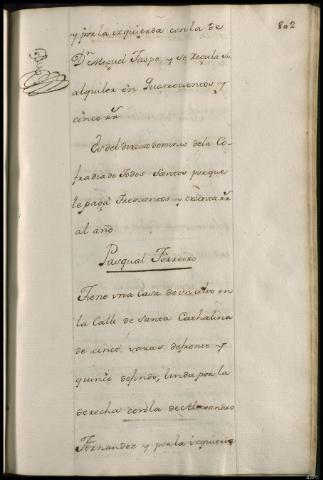 802
y por la izquierda con la de
Dn. Miguel Taspe, y se regula su
alquiler en Quatrocientos, y
cinco rr.s
Es del directo dominio de la Co-
fradia de Todos Santos porque
le paga Trescientos y treinta rr.s
al año.
Pasqual Forreiro
Tiene una Casa de un alto en
la Calle de Santa Cathalina
de cinco varas de frente y
quince de fondo, linda por la
derecha con la de Alexandro
Fernandez y por la izquier